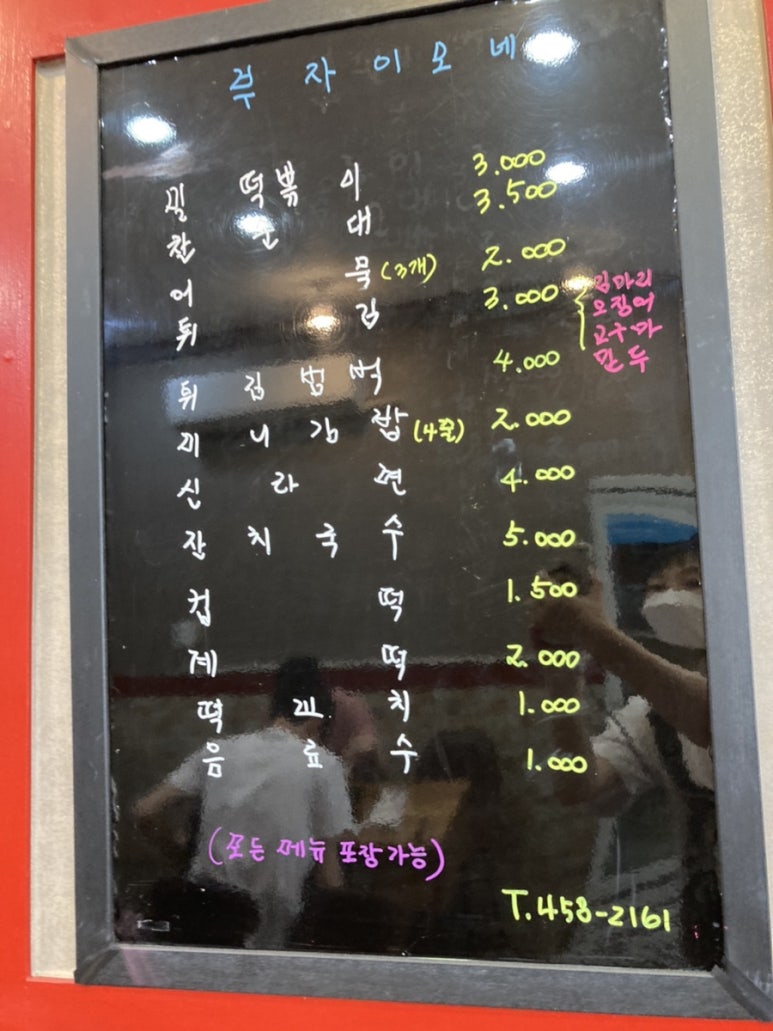 부 자 이 모 네
밀 떡 볶 이 3.000
찬 순 대 3.500
어 묵 (3개) 2.000
튀 김 3.000 { 김마리
오징어
고구마
만두
튀 김 범 벅 4.000
미 니 김 밥 (4줄) 2.000
신 라 면 4.000
잔 치 국 수 5.000
컵 떡 1.500
계 떡 2.000
떡 꼬 치 1.000
음 료 수 1.000
(모든 메뉴 포장가능)
T.458-2161